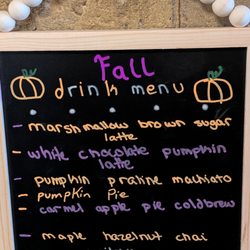 Fall
drink menu
- marshmallow brown sugar
latte
- white chocolate pumpkin
latte
- pumpkin praline machiato
- pumpkin pie
- carmel apple pie coldbrew
- maple hazelnut chai